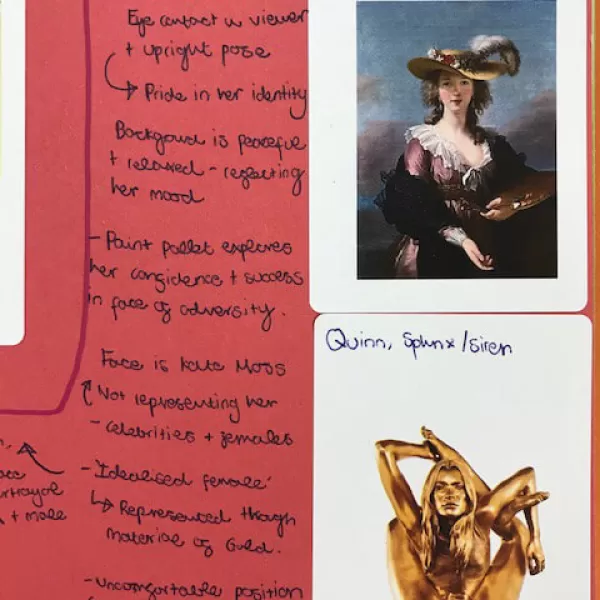 Eye contact w viewer
+ upright pose
Pride in her identity
Background is peaceful
+ relaxed - reflecting
her mood
- Paint pallet explores
her confidence + success
in face of adversity.
Face is Kate Moss
Not representing her
- celebrities + females
- 'Idealised female'
Represented though
material of Gold.
- Uncomfortable position
+ male
Quinn, Sphnx/Siren